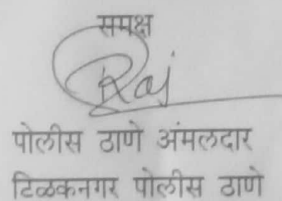 समक्ष
Raj
पोलीस ठाणे अंमलदार
टिळकनगर पोलीस ठाणे